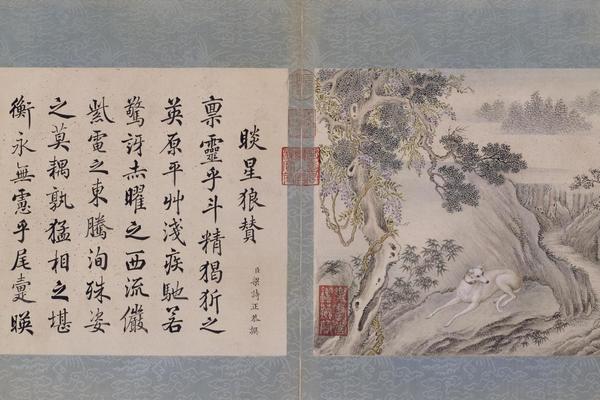 睒星狼贊
臣梁詩正恭撰
稟靈乎斗精猲㹞之
英原平艸淺疾馳若
驚訝赤曜之西流儼
紫電之東騰洵殊姿
之莫耦孰猛相之堪
衡永無慮乎尾疐暎